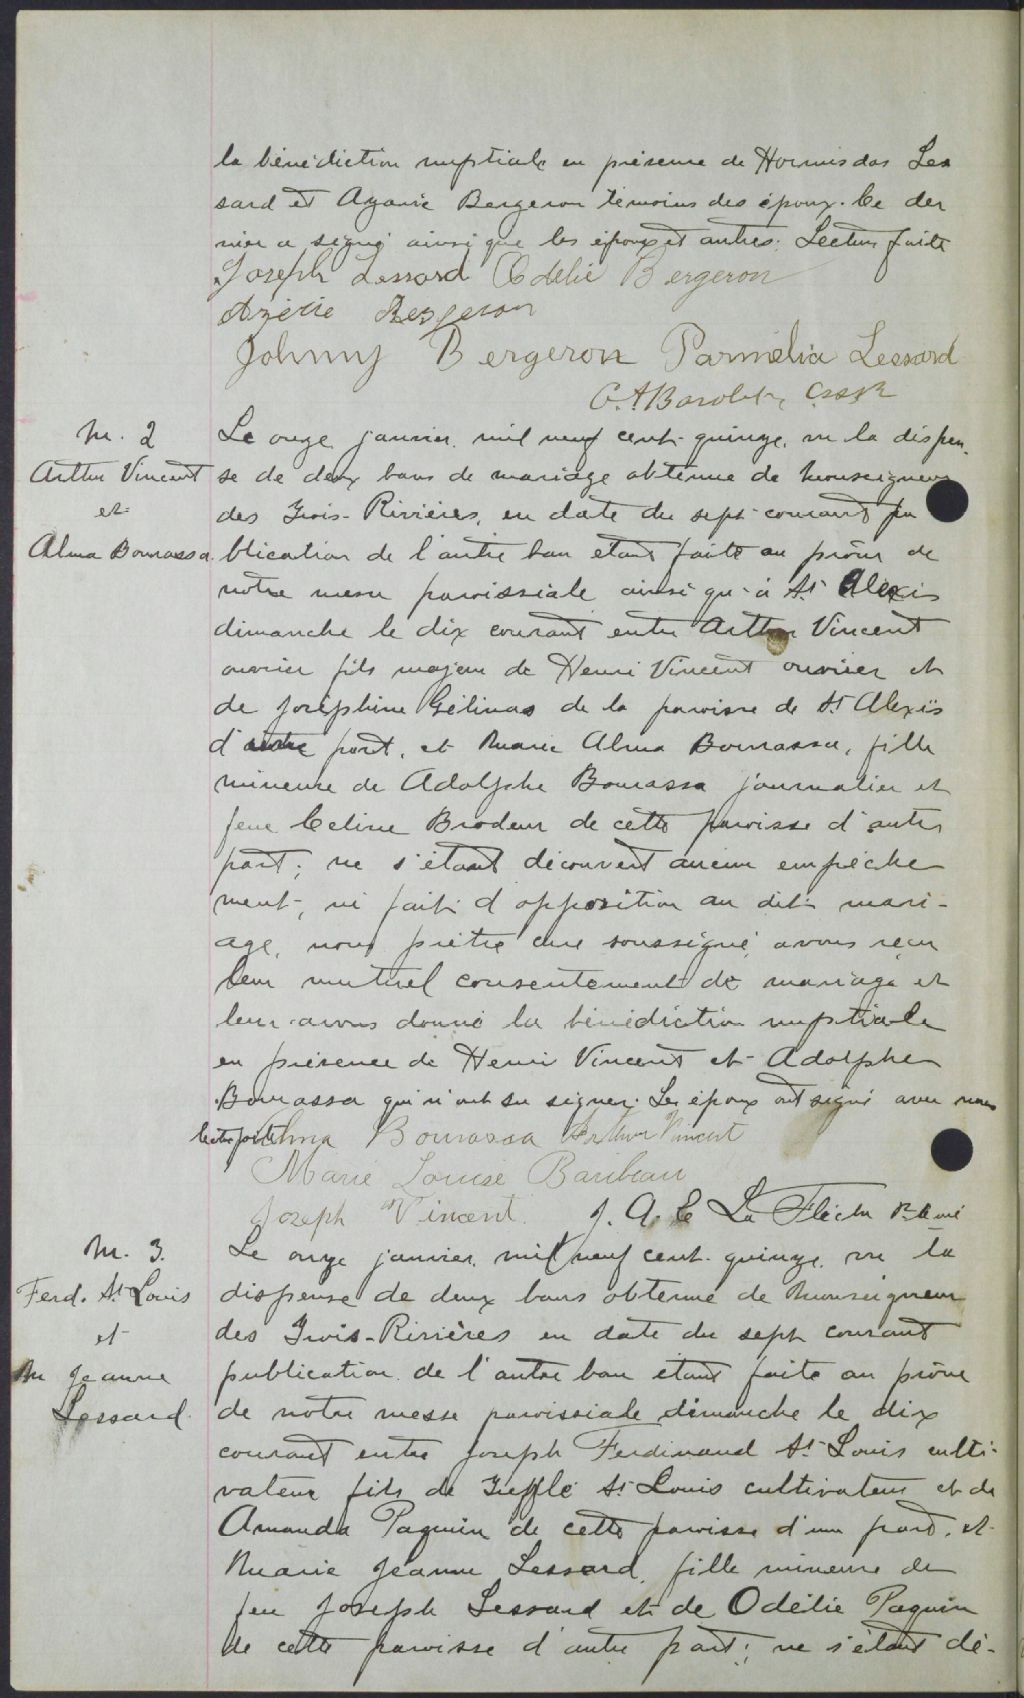 la bénédiction nuptiale en présence de Hormisdas Les
sard et Azarie Bergeron témoins des époux. Ce der
nier a signé ainsi que les époux et autres. Lecture faite
Joseph Lessard Odélie Bergeron
Azérie Bergeron
Johnny Bergeron Parmélia Lessard
M. 2
Arthur Vincent
et
Alma Bourassa
Le onze janvier mil neuf cent quinze, vu la dispen
se de deux bans de mariage obtenue de Monseigneur
des Trois-Rivières, en date du sept courant pu
blication de l'autre ban étant faite au prône de
notre messe paroissiale ainsi qu'à St Alexis
dimanche le dix courant entre Arthur Vincent
ouvrier fils majeur de Henri Vincent ouvrier et
de Joséphine Gélinas de la paroisse de St Alexis
d' part, et Marie Alma Bourassa, fille
mineure de Adolphe Bourassa journalier et
feue Celine Brodeur de cette paroisse d'autre
part; ne s'étant découvert aucun empêche
ment, ni fait d'opposition au dit mari-
age, nous prêtre curé soussigné, avons reçu
leur mutuel consentement de mariage et
leur avons donné la bénédiction nuptiale
en présence de Henri Vincent et Adolphe
Bourassa qui n'ont su signer. Les époux ont signé avec nous
lecture faite Alma Bourassa Arthur Vincent
Marie Louise Baribeau
Joseph Vincent. J. A. E La Flèche Ptre curé
M. 3.
Ferd. St Louis
et
M Jeanne
Lessard.
Le onze janvier mil neuf cent quinze, vu la
dispense de deux bans obtenue de Monseigneur
des Trois-Rivières en date du sept courant
publication de l'autre ban étant faite au prône
de notre messe paroissiale dimanche le dix
courant entre Joseph Ferdinand St Louis culti-
vateur fils de Trefflé St Louis cultivateur et de
Amanda Paquin de cette paroisse d'une part, et
Marie Jeanne Lessard, fille mineure de
feu Joseph Lessard et de Odélie Paquin
de cette paroisse d'autre part; ne s'étant dé-